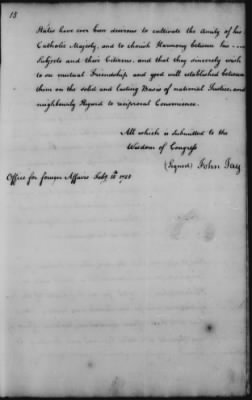 18
States have ever been desirous to cultivate the Amity of his
Catholic Majesty, and to cherish Harmony between his
Subjects and their Citizens, and that they sincerely wish
to see mutual Friendship and good will established between
them on the solid and lasting Basis of national Justice, and
neighbourly Regard to reciprocal Convenience.
All which is submitted to the
Wisdom of Congress
(Signed) John Jay
Office for foreign Affairs Feby